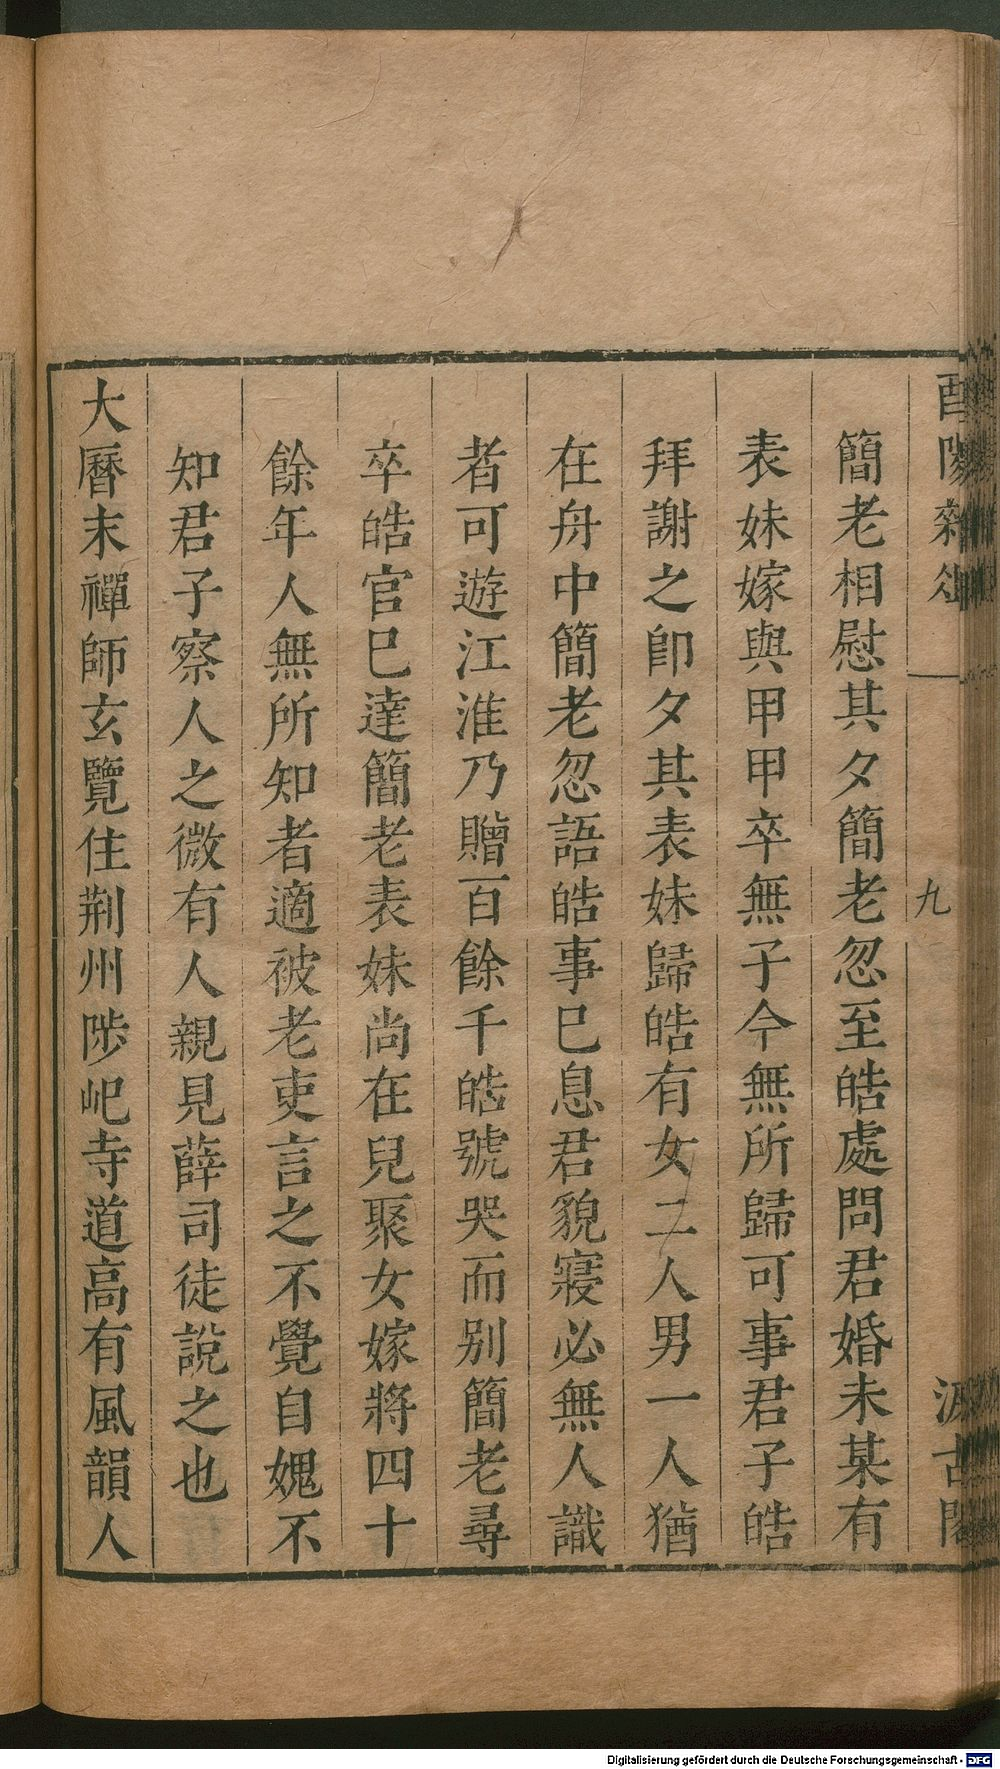 簡老相慰其夕簡老忽至皓處問君婚未某有
表妹嫁與甲甲卒無子今無所歸可事君子皓
拜謝之卽夕其表妹歸皓有女二人男一人猶
在舟中簡老忽語皓事巳息君貌寢必無人識
者可遊江淮乃贈百餘千皓號哭而别簡老尋
卒皓官巳達簡老表妹尚在兒聚女嫁將四十
餘年人無所知者適被老吏言之不覺自媿不
知君子察人之微有人親見薛司徒說之也
大曆末禪師玄覽住荆州陟屺寺道高有風韻人
九
Digitalisierung gefördert durch die Deutsche Forschungsgemeinschaft - DFG